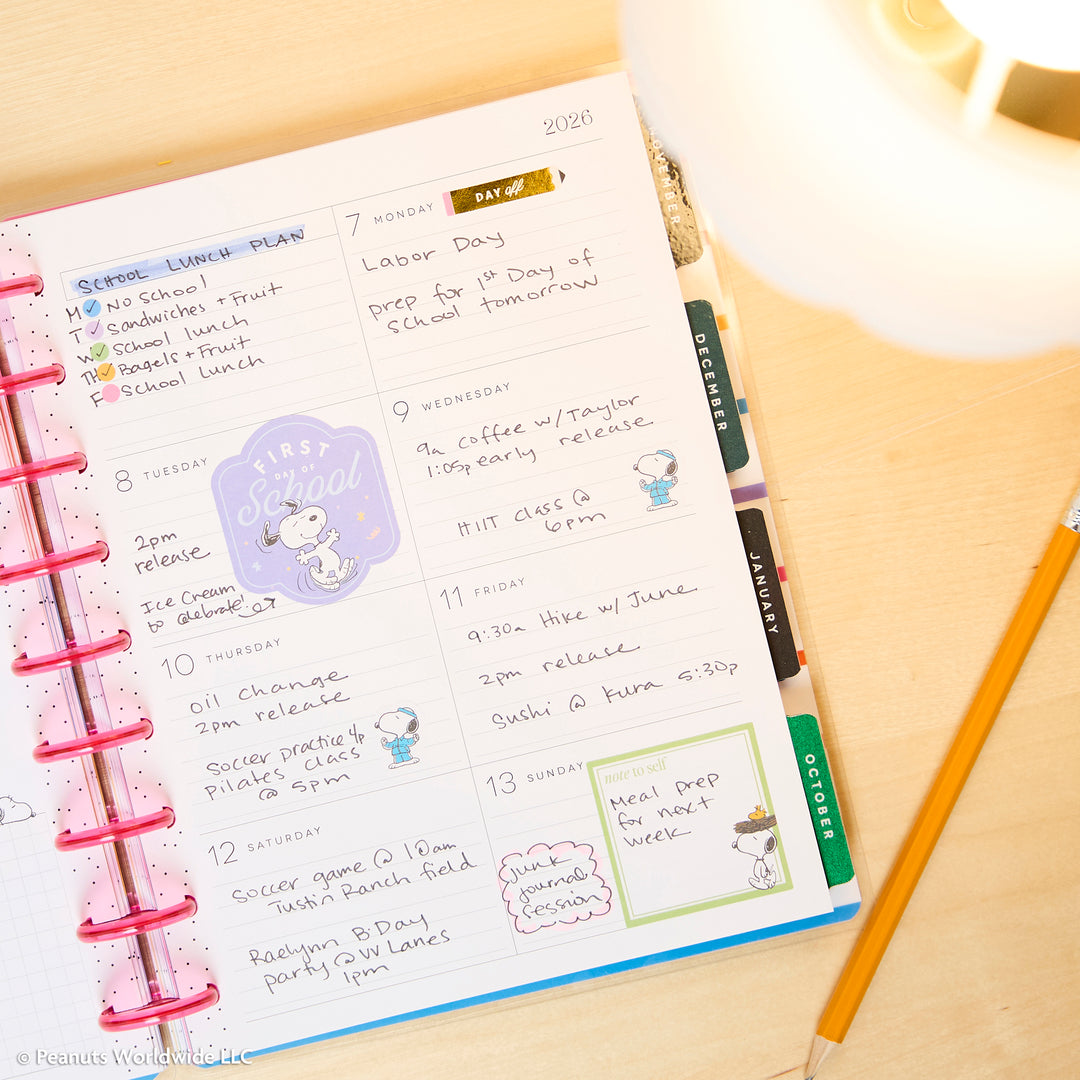 2026
SCHOOL LUNCH PLAN
M ✓ No School
T ✓ Sandwiches + Fruit
W ✓ School lunch
TH ✓ Bagels + Fruit
F School lunch
7 MONDAY
DAY off
Labor Day
prep for 1st Day of
school tomorrow
8 TUESDAY
FIRST
DAY OF
School
2pm
release
Ice Cream
to celebrate!
9 WEDNESDAY
9a coffee w/Taylor
1:05p early release
HIIT class @
6pm
10 THURSDAY
oil change
2pm release
soccer practice 4p
pilates class
@ 5pm
11 FRIDAY
9:30a Hike w/ June
2pm release
Sushi @ Kura 5:30p
12 SATURDAY
soccer game @ 10am
Tustin Ranch field
Raelynn B-Day
party @ VV Lanes
1pm
13 SUNDAY
junk
journal
session
note to self
Meal prep
for next
week
NOVEMBER
DECEMBER
JANUARY
OCTOBER
© Peanuts Worldwide LLC